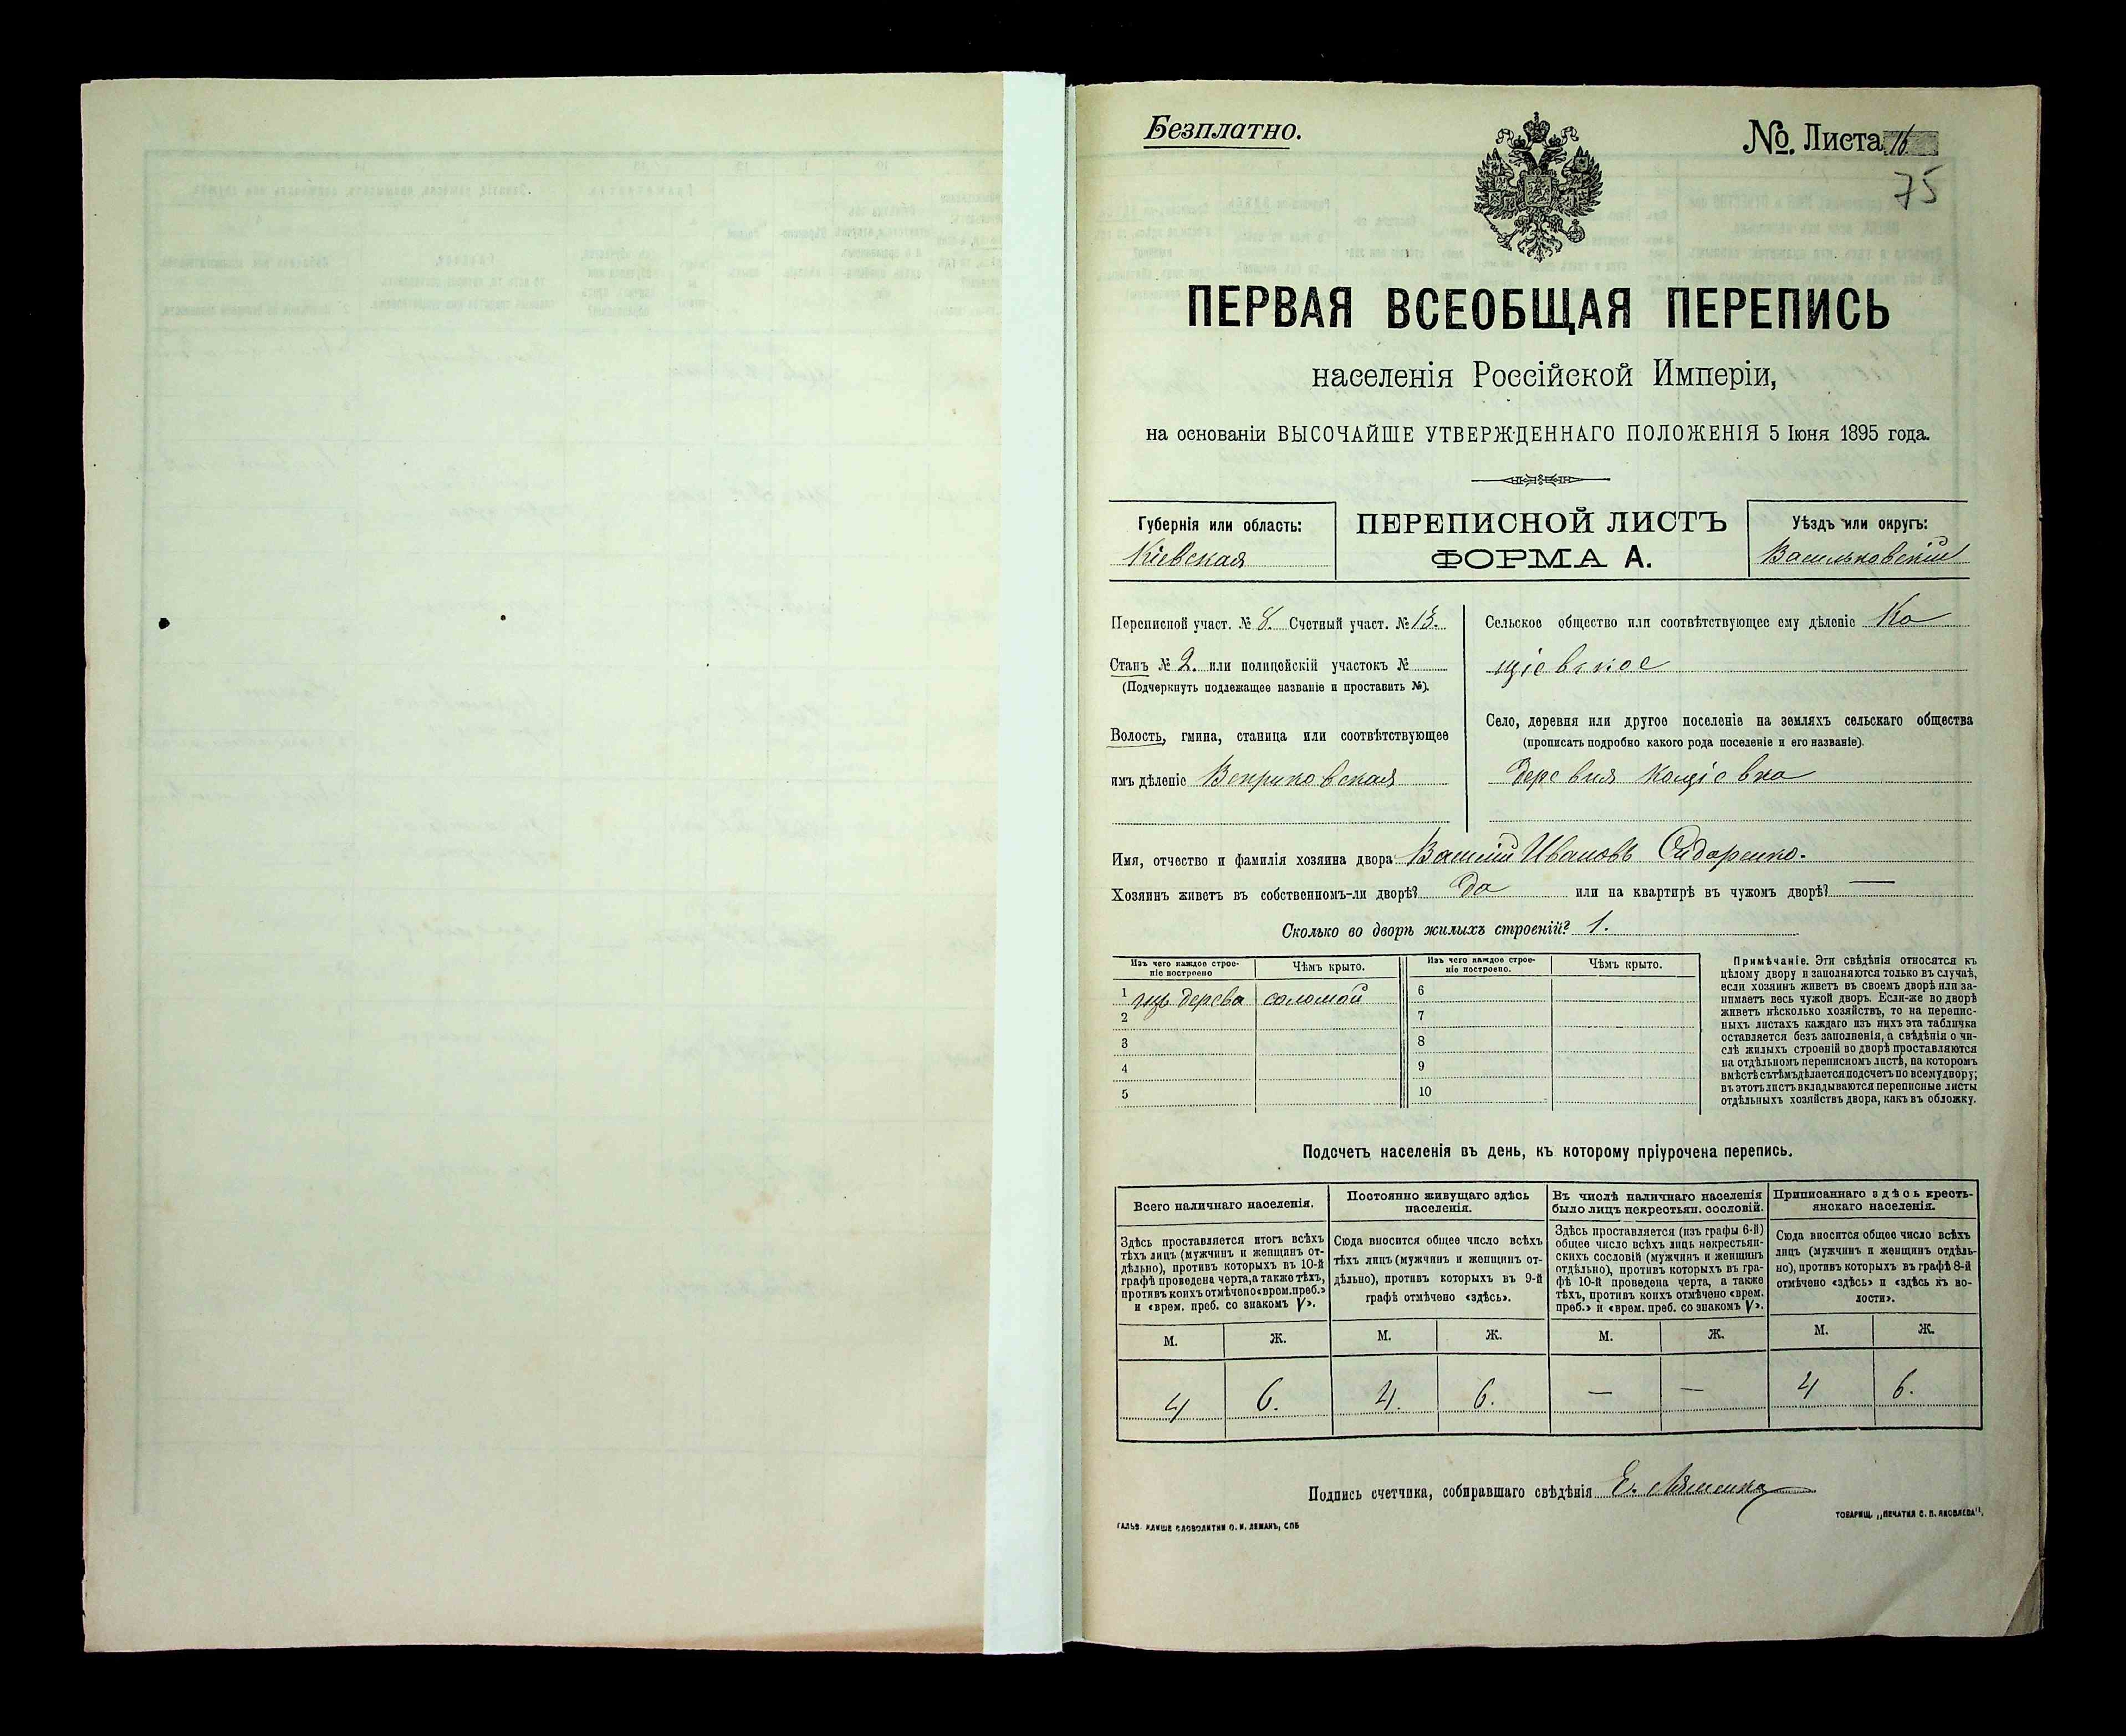 Безплатно.
№. Листа 16
75
ПЕРВАЯ ВСЕОБЩАЯ ПЕРЕПИСЬ
населенія Россійской Имперіи,
на основаніи ВЫСОЧАЙШЕ УТВЕРЖДЕННАГО ПОЛОЖЕНІЯ 5 Іюня 1895 года.
Губернія или область:
Кіевская
ПЕРЕПИСНОЙ ЛИСТЪ
ФОРМА А.
Уѣздъ или округъ:
Васильковскій
Переписной участ. № 8. Счетный участ. № 13.
Станъ № 2. или полицейскій участокъ №
(Подчеркнуть подлежащее названіе и проставить №).
Волость, гмина, станица или соотвѣтствующее
имъ дѣленіе Веприковская
Сельское общество или соотвѣтствующее ему дѣленіе Ко
щіевское
Село, деревня или другое поселеніе на земляхъ сельскаго общества
(прописать подробно какого рода поселеніе и его названіе).
деревня Кощіевка
Имя, отчество и фамилія хозяина двора Василій Ивановъ Сидоренко.
Хозяинъ живетъ въ собственномъ-ли дворѣ? Да или на квартирѣ въ чужомъ дворѣ? —
Сколько во дворѣ жилыхъ строеній? 1.
Изъ чего каждое строе-
ніе построено
Чѣмъ крыто.
Изъ чего каждое строе-
ніе построено.
Чѣмъ крыто.
1 изъ дерева соломой
2
3
4
5
6
7
8
9
10
Примѣчаніе. Эти свѣдѣнія относятся къ
цѣлому двору и заполняются только въ случаѣ,
если хозяинъ живетъ въ своемъ дворѣ или за-
нимаетъ весь чужой дворъ. Если-же во дворѣ
живетъ нѣсколько хозяйствъ, то на перепис-
ныхъ листахъ каждаго изъ нихъ эта табличка
оставляется безъ заполненія, а свѣдѣнія о чи-
слѣ жилыхъ строеній во дворѣ проставляются
на отдѣльномъ переписномъ листѣ, на которомъ
вмѣстѣ съ тѣмъ дѣлается подсчетъ по всему двору;
въ этотъ листъ вкладываются переписные листы
отдѣльныхъ хозяйствъ двора, какъ въ обложку.
Подсчетъ населенія въ день, къ которому пріурочена перепись.
Всего наличнаго населенія.
Здѣсь проставляется итогъ всѣхъ
тѣхъ лицъ (мужчинъ и женщинъ от-
дѣльно), противъ которыхъ въ 10-й
графѣ проведена черта, а также тѣхъ,
противъ коихъ отмѣчено «врем. преб.»
и «врем. преб. со знакомъ V».
Постоянно живущаго здѣсь
населенія.
Сюда вносится общее число всѣхъ
тѣхъ лицъ (мужчинъ и женщинъ от-
дѣльно), противъ которыхъ въ 9-й
графѣ отмѣчено «здѣсь».
Въ числѣ наличнаго населенія
было лицъ некрестьян. сословій.
Здѣсь проставляется (изъ графы 6-й)
общее число всѣхъ лицъ некрестьян-
скихъ сословій (мужчинъ и женщинъ
отдѣльно), противъ которыхъ въ гра-
фѣ 10-й проведена черта, а также
тѣхъ, противъ коихъ отмѣчено «врем.
преб.» и «врем. преб. со знакомъ V».
Приписаннаго здѣсь кресть-
янскаго населенія.
Сюда вносится общее число всѣхъ
лицъ (мужчинъ и женщинъ отдѣль-
но), противъ которыхъ въ графѣ 8-й
отмѣчено «здѣсь» и «здѣсь къ во-
лости».
М. Ж. М. Ж. М. Ж. М. Ж.
4 6. 4. 6. — — 4 6.
Подпись счетчика, собиравшаго свѣдѣнія Е. Ляшенко
ГАЛЬВ. КЛИШЕ СЛОВОЛИТНИ О. И. ЛЕМАНЪ, СПБ
ТОВАРИЩ. „ПЕЧАТНЯ С. П. ЯКОВЛЕВА".